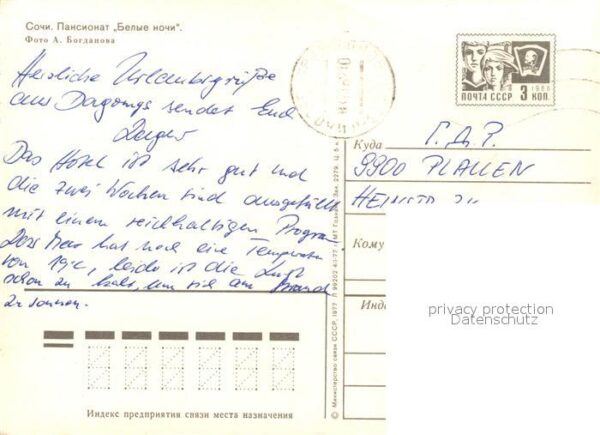 Сочи. Пансионат „Белые ночи".
Фото А. Богданова
Herzliche Urlaubsgrüße
aus Dagomys sendet Euch
Das Hotel ist sehr gut und
die zwei Wochen sind ausgefüllt
mit einem reichhaltigen Program
Das Meer hat noch eine Temperatur
von 19°C, leider ist die Luft
schon zu kalt, um sich am Strand
zu sonnen.
ПОЧТА СССР 3 КОП.
1966
Куда Г.Д.Р.
9900 PLAUEN
Кому
Инд
privacy protection
Datenschutz
Индекс предприятия связи места назначения
© Министерство связи СССР, 1977